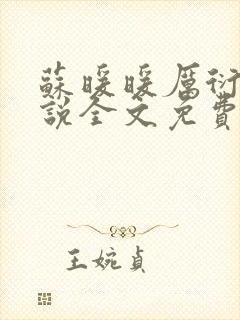 蘇暖暖厲衍
說全文免費
王婉貞